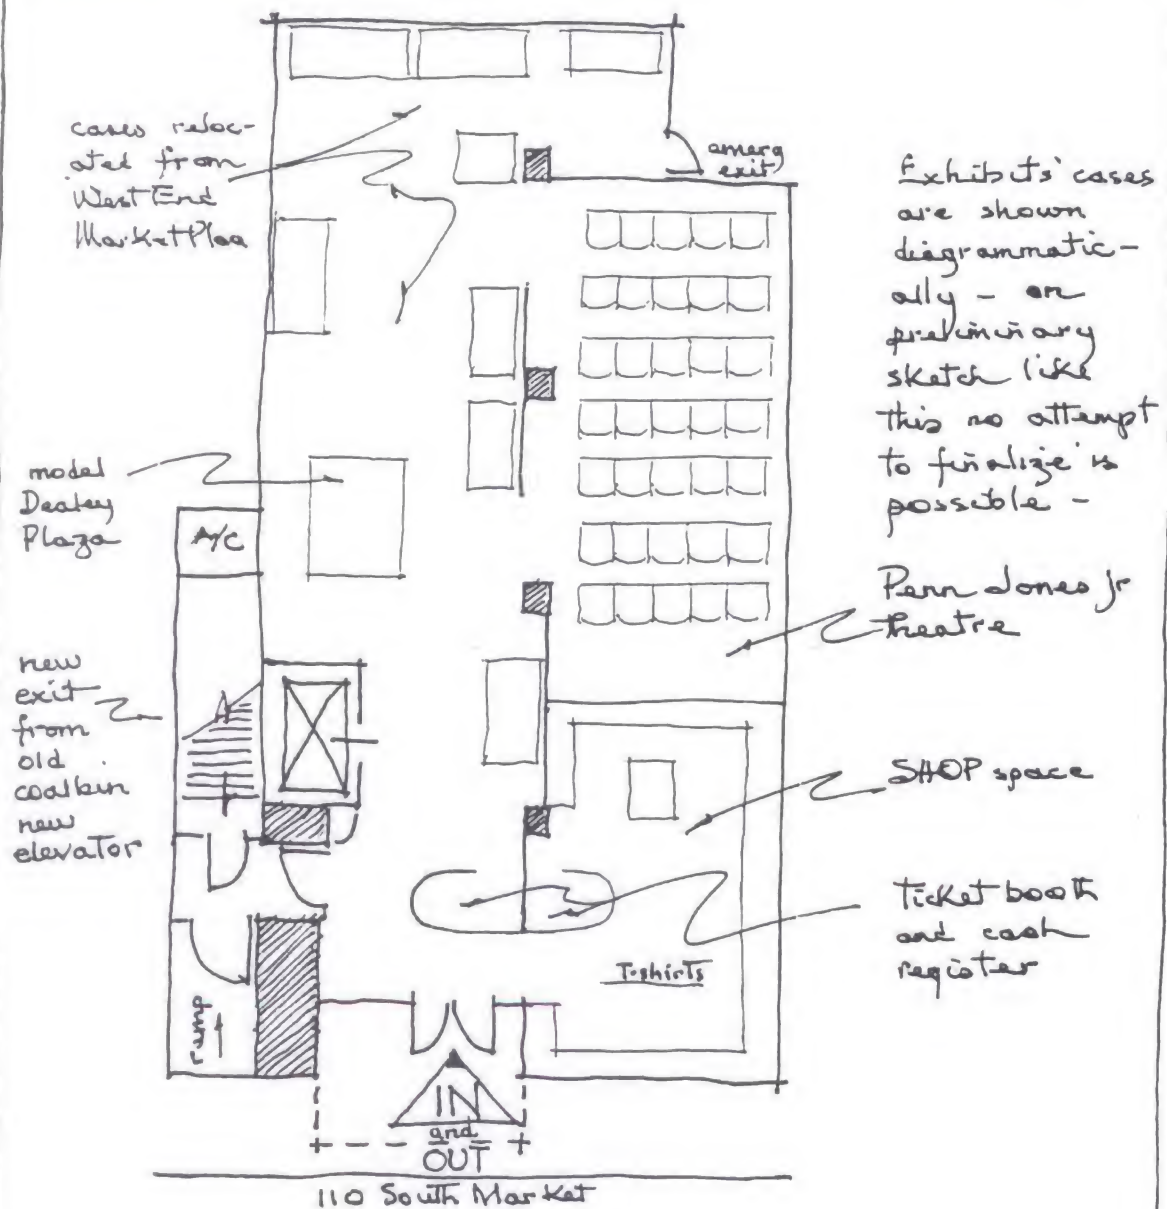 cases reloc-
ated from
West End
MarketPlaa
emerg
exit
Exhibits' cases
are shown
diagrammatic-
ally - on
preliminary
sketch like
this no attempt
to finalize is
possible -
model
Dealey
Plaza
A/C
Penn Jones jr
theatre
new
exit
from
old
coalbin
new
elevator
SHOP space
Ticket booth
and cash
register
T-shirts
ramp
IN
and
OUT
110 South Market